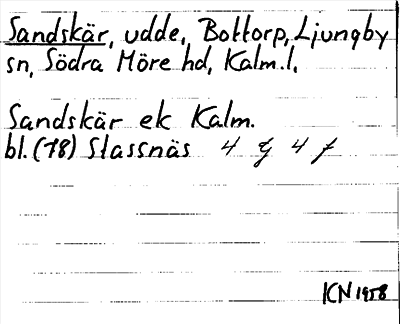 Sandskär, udde, Bottorp, Ljungby
sn, Södra Möre hd, Kalm. l.
Sandskär ek Kalm.
bl. (78) Stassnäs 4 g 4 f
KN 1958